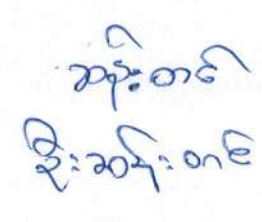 ဆန်းတင်
ဦးဆန်းတင်